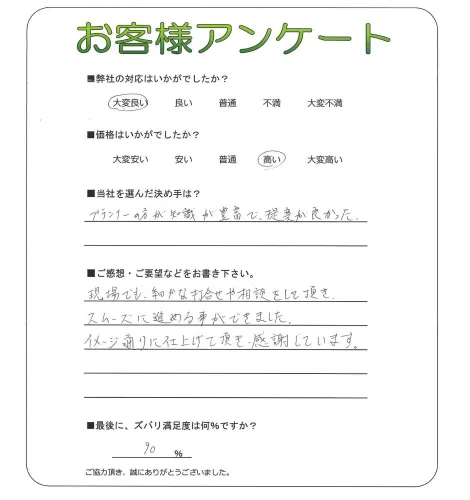 お客様アンケート
■弊社の対応はいかがでしたか？
大変良い 良い 普通 不満 大変不満
■価格はいかがでしたか？
大変安い 安い 普通 高い 大変高い
■当社を選んだ決め手は？
プランナーの方が知識が豊富で、提案が良かった。
■ご感想・ご要望などをお書き下さい。
現場でも、細かな打合せや相談をして頂き、
スムーズに進める事ができました。
イメージ通りに仕上げて頂き、感謝しています。
■最後に、ズバリ満足度は何％ですか？
90 ％
ご協力頂き、誠にありがとうございました。